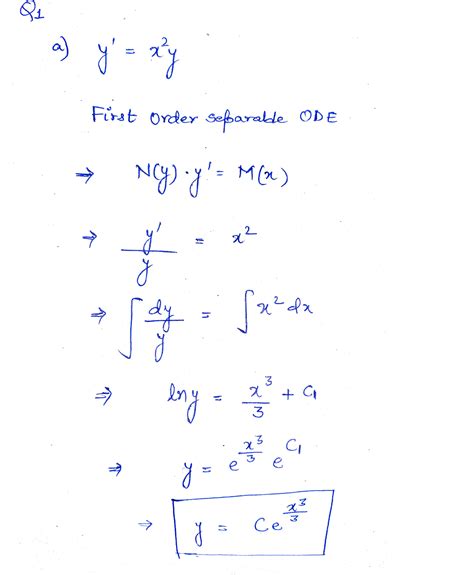 Q1
a) y' = x²y
First Order separable ODE
⇒ N(y)·y' = M(x)
→ y'/y = x²
⇒ ∫ dy/y = ∫ x² dx
⇒ ln y = x³/3 + C₁
⇒ y = e^(x³/3) e^(C₁)
→ y = Ce^(x³/3)